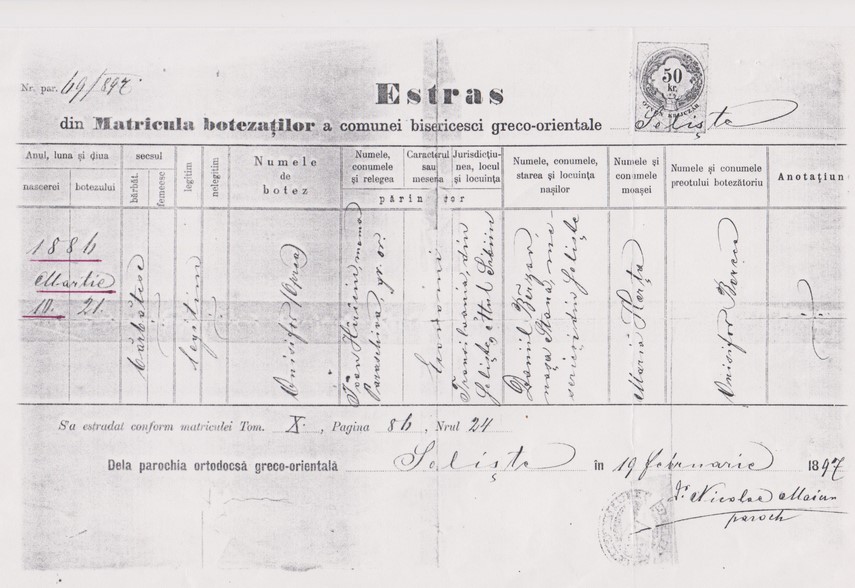 Nr. par. 69/897.
50
kr.
Estras
din Matricula botezaților a comunei bisericesci greco-orientale Seliște
Anul, luna și diua
nascerei
botezului
secsul
bărbăt.
femeesc
legitim
nelegitim
Numele
de
botez
Numele,
conumele
și relegea
Caracterul
sau
meseria
Jurisdicțiu-
nea, locul
și locuința
părin  tor
Numele, conumele,
starea și locuința
nașilor
Numele și
conumele
moașei
Numele și conumele
preotului botezătoriu
Anotațiun
1886
Martie
10.
21.
bărbătesc
legitim
Onisifor/Oprea
Ioan
Paraschiva, gr. or.
Economi
Transilvania, din
Seliște,
Daniil
Stana,
din Seliște
Maria
Onisifor
S'a estradat conform matriculei Tom. X., Pagina 86, Nrul 24
Dela parochia ortodocsă greco-orientală Seliște în 19 februarie 1897
Nicolae
paroch